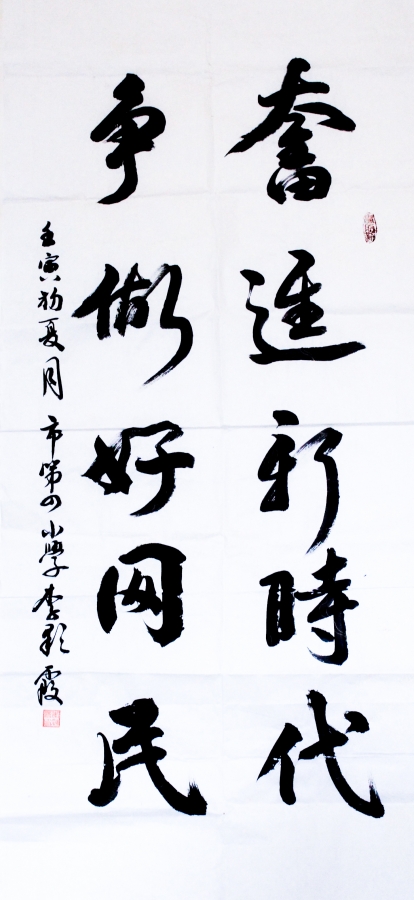 奮進新時代
争做好网民
壬寅初夏月 市第四小學李彩霞